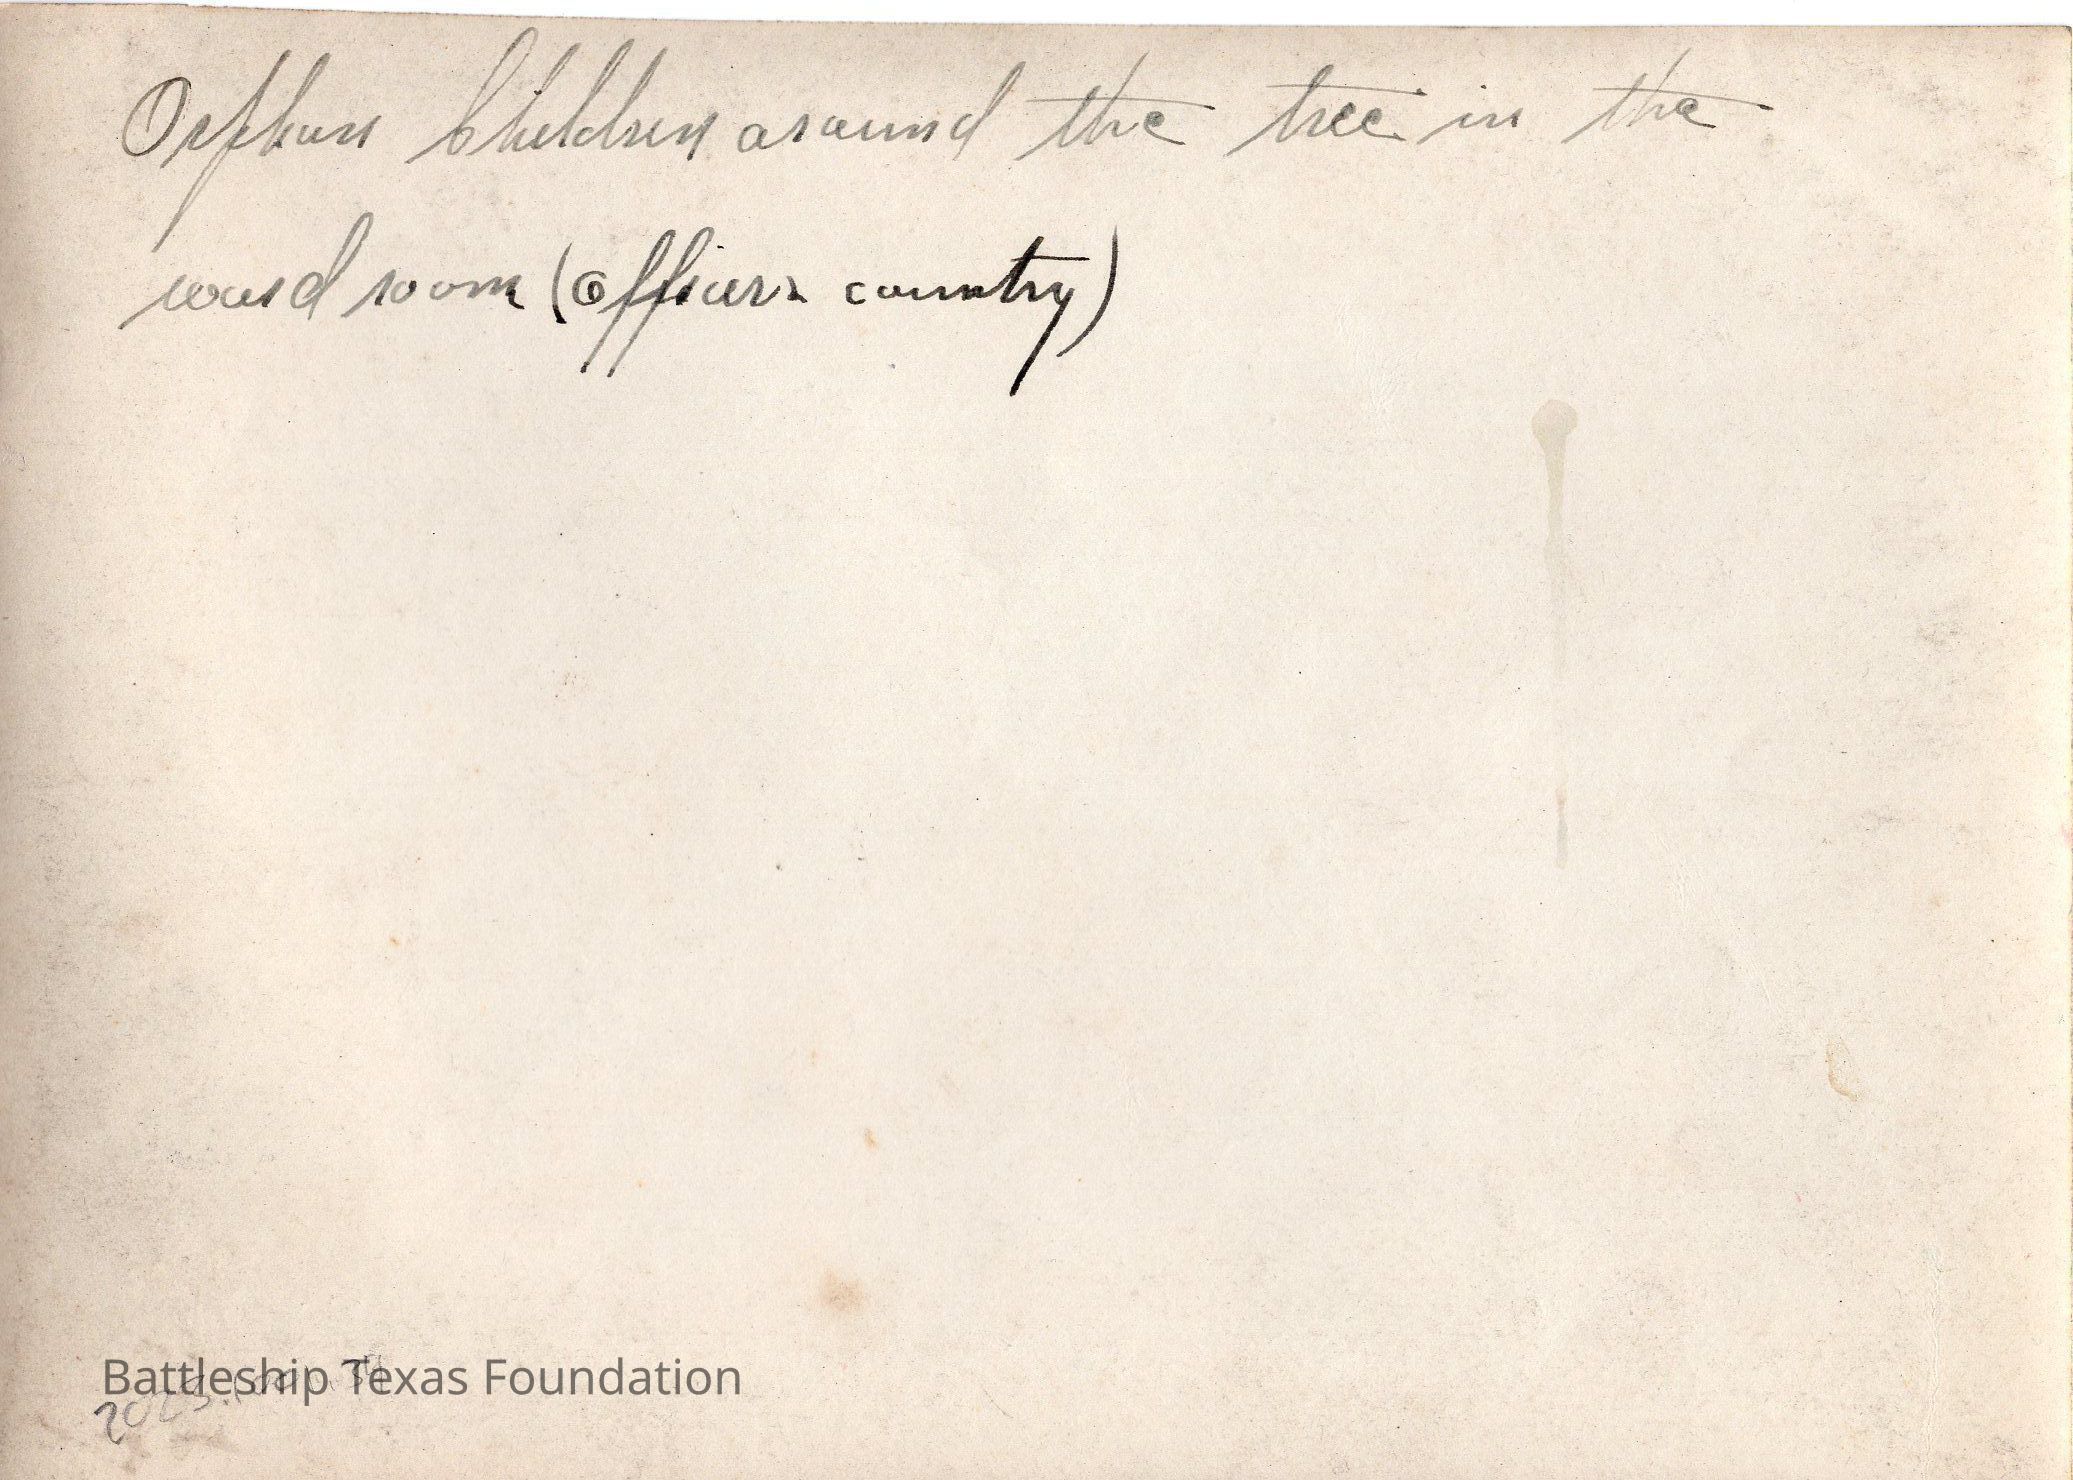 Orphan Children around the tree in the
ward room (officers country)
Battleship Texas Foundation